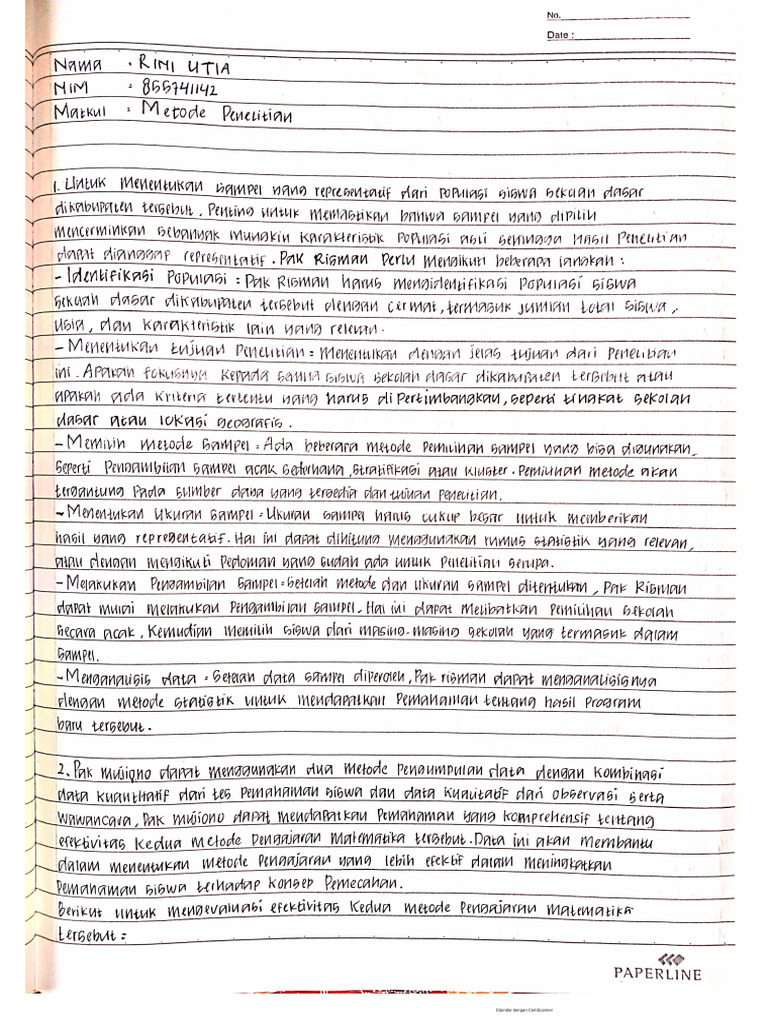 No.
Date :
Nama : RINI UTIA
NIM : 855741142
Matkul : Metode Penelitian
1. Untuk menentukan sampel yang representatif dari populasi siswa sekolah dasar
dikabupaten tersebut, Penting untuk memastikan bahwa sampel yang dipilih
mencerminkan sebanyak mungkin karakteristik populasi asli sehingga hasil Penelitian
dapat dianggap representatif. Pak Risman Perlu mengikuti beberapa langkah :
- Identifikasi Populasi : Pak Risman harus mengidentifikasi populasi siswa
sekolah dasar dikabupaten tersebut dengan cermat, termasuk jumlah total siswa,
usia, dan karakteristik lain yang relevan.
- Menentukan tujuan Penelitian : Menentukan dengan jelas tujuan dari Penelitian
ini. Apakah fokusnya kepada semua siswa sekolah dasar dikabupaten tersebut atau
apakah ada kriteria tertentu yang harus dipertimbangkan, seperti tingkat sekolah
dasar atau lokasi geografis.
- Memilih metode sampel : Ada beberapa metode pemilihan sampel yang bisa digunakan,
seperti Pengambilan sampel acak sederhana, stratifikasi atau kluster. Pemilihan metode akan
tergantung pada sumber daya yang tersedia dan tujuan penelitian.
- Menentukan Ukuran Sampel : Ukuran sampel harus cukup besar untuk memberikan
hasil yang representatif. Hal ini dapat dihitung menggunakan rumus statistik yang relevan,
atau dengan mengikuti Pedoman yang sudah ada untuk Penelitian serupa.
- Melakukan Pengambilan Sampel : Setelah metode dan ukuran sampel ditentukan, Pak Risman
dapat mulai melakukan Pengambilan sampel. Hal ini dapat melibatkan Pemilihan sekolah
secara acak, Kemudian memilih siswa dari masing-masing sekolah yang termasuk dalam
sampel.
- Menganalisis data : Setelah data sampel diperoleh, Pak risman dapat menganalisisnya
dengan metode statistik untuk mendapatkan Pemahaman tentang hasil program
baru tersebut.
2. Pak mujiono dapat menggunakan dua metode pengumpulan data dengan kombinasi
data kuantitatif dari tes Pemahaman siswa dan data kualitatif dari observasi serta
wawancara, Pak mujiono dapat mendapatkan Pemahaman yang komprehensif tentang
efektivitas Kedua metode Pengajaran Matematika tersebut. Data ini akan membantu
dalam menentukan metode Pengajaran yang lebih efektif dalam meningkatkan
pemahaman siswa terhadap konsep Pemecahan.
Berikut untuk mengevaluasi efektivitas Kedua metode Pengajaran matematika
tersebut :
PAPERLINE
Dipindai dengan CamScanner